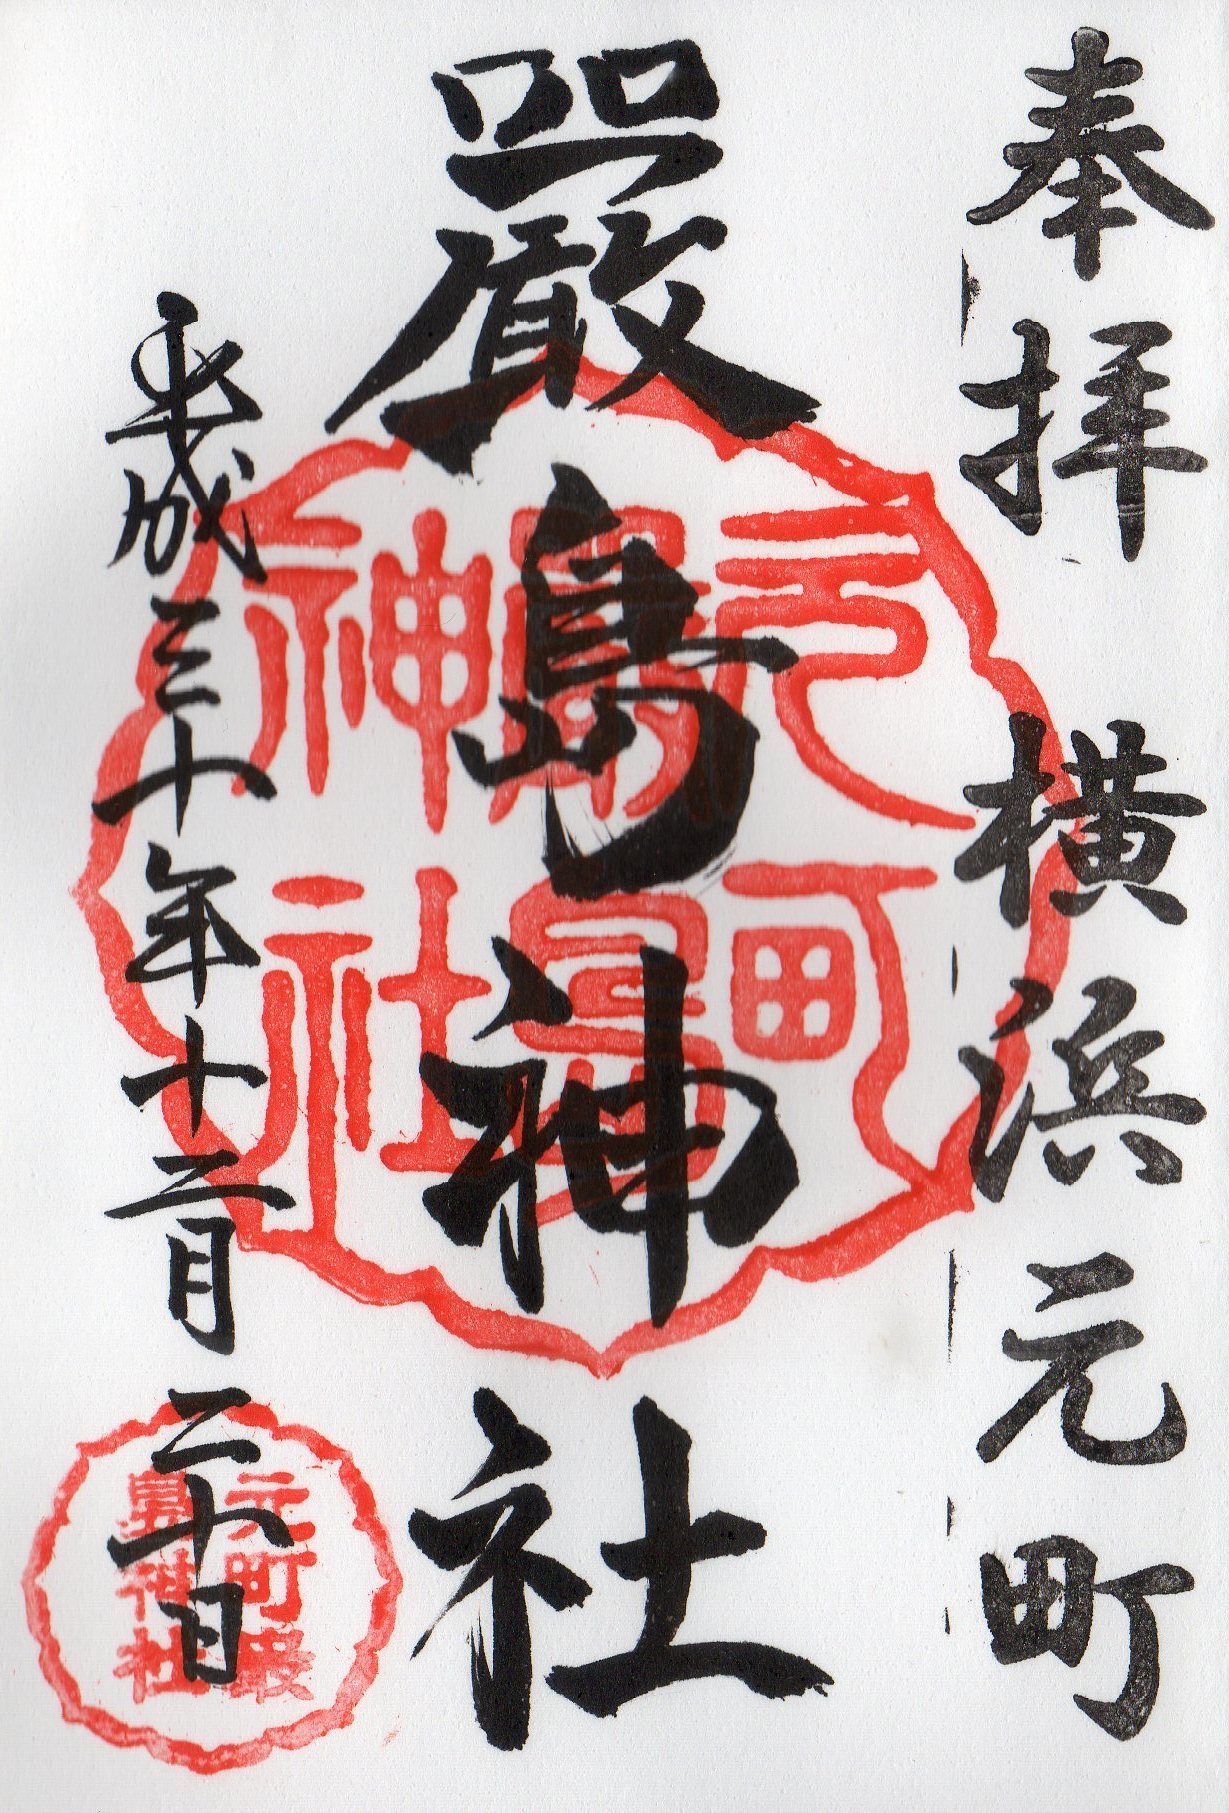 奉拝 横浜元町
嚴島神社
平成三十年十二月二十日
元町
嚴島
神社
元町嚴
島神社